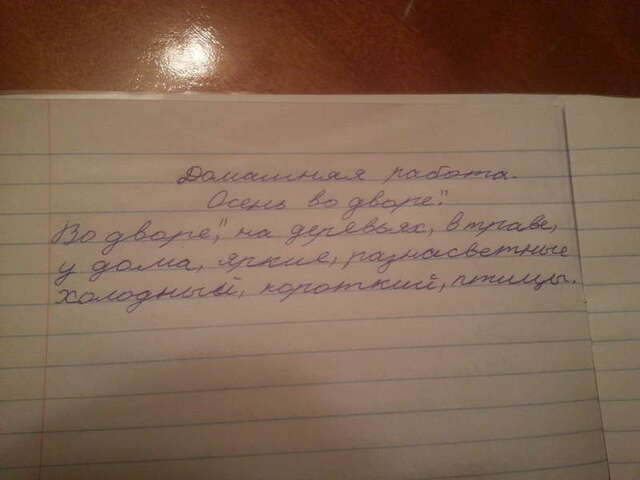 Домашняя работа.
"Осень во дворе."
Во дворе, на деревьях, в траве,
у дома, яркие, разноцветные
холодный, короткий, птицы.